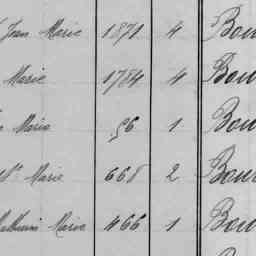 Jean Marie 1871 4 Bou
Marie 1784 4 Bou
Marie 96 1 Bou
Marie 668 2 Bou
Mathurin Marie 466 1 Bou